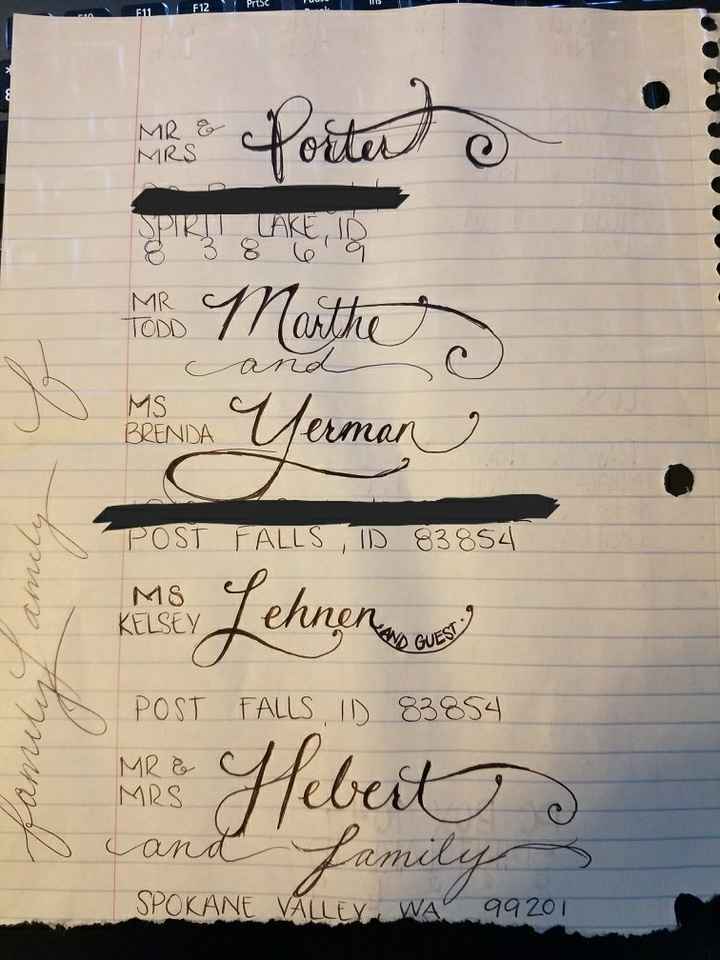 F11 F12 PrtSc Ins
MR & MRS Porter
SPIRIT LAKE, ID
8 3 8 6 9
MR TODD Marthe
and
MS BRENDA Yerman
POST FALLS, ID 83854
MS KELSEY Lehnen AND GUEST
POST FALLS, ID 83854
MR & MRS Hebert
and family
SPOKANE VALLEY, WA 99201
family family f